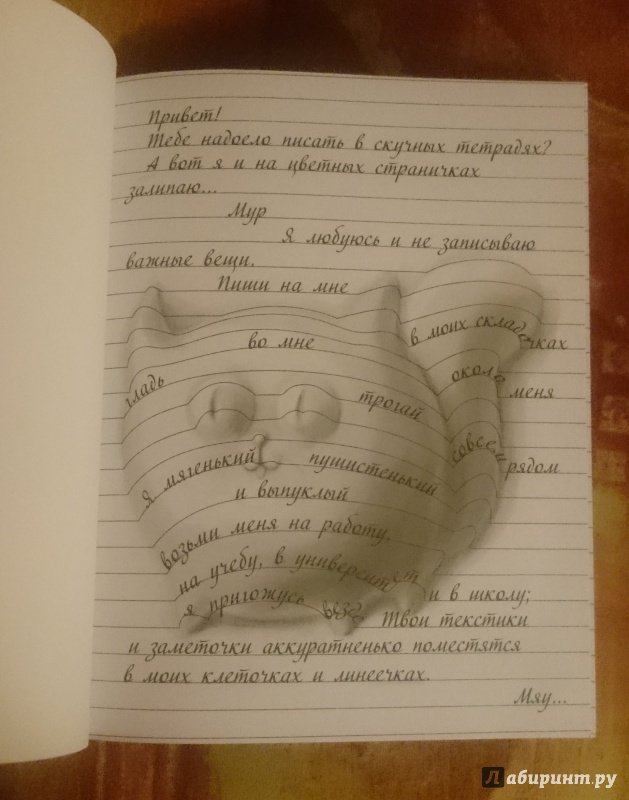 Привет!
Тебе надоело писать в скучных тетрадях?
А вот я и на цветных страничках
залипаю...
Мур
Я любуюсь и не записываю
важные вещи.
Пиши на мне
во мне
в моих складочках
гладь
трогай
около меня
я мягенький
пушистенький
совсем рядом
и выпуклый
возьми меня на работу,
на учебу, в университет
и в школу;
я пригожусь везде.
Твои текстики
и заметочки аккуратненько поместятся
в моих клеточках и линеечках.
Мяу...
Лабиринт.ру